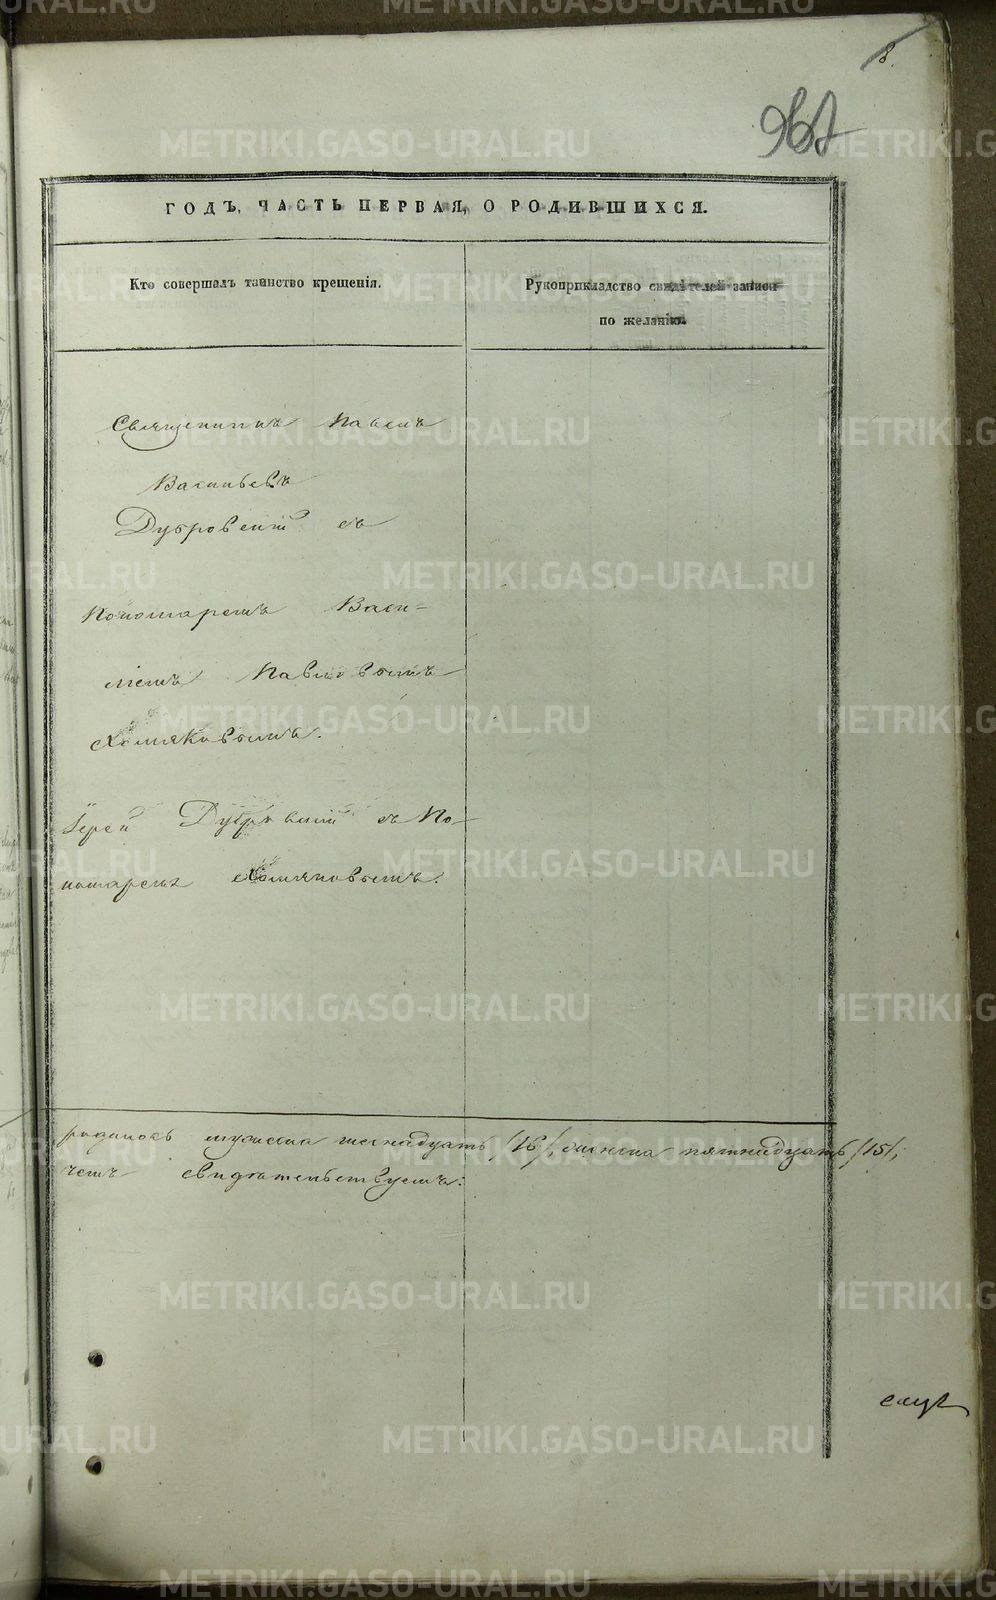 8.
967
ГОДЪ, ЧАСТЬ ПЕРВАЯ, О РОДИВШИХСЯ.
Кто совершалъ таинство крещенія.
Рукоприкладство свидѣтелей записи
по желанію.
Священникъ Павелъ
Васильевъ
Дубровскій съ
Пономаремъ Васи-
ліемъ Павловымъ
Хомяковымъ.
Іерей Дубровскій съ По-
номаремъ Хомяковымъ.
родилось мужеска шестнадцать /16/, женска пятнадцать /15/,
чемъ свидѣтельствуемъ:
METRIKI.GASO-URAL.RU